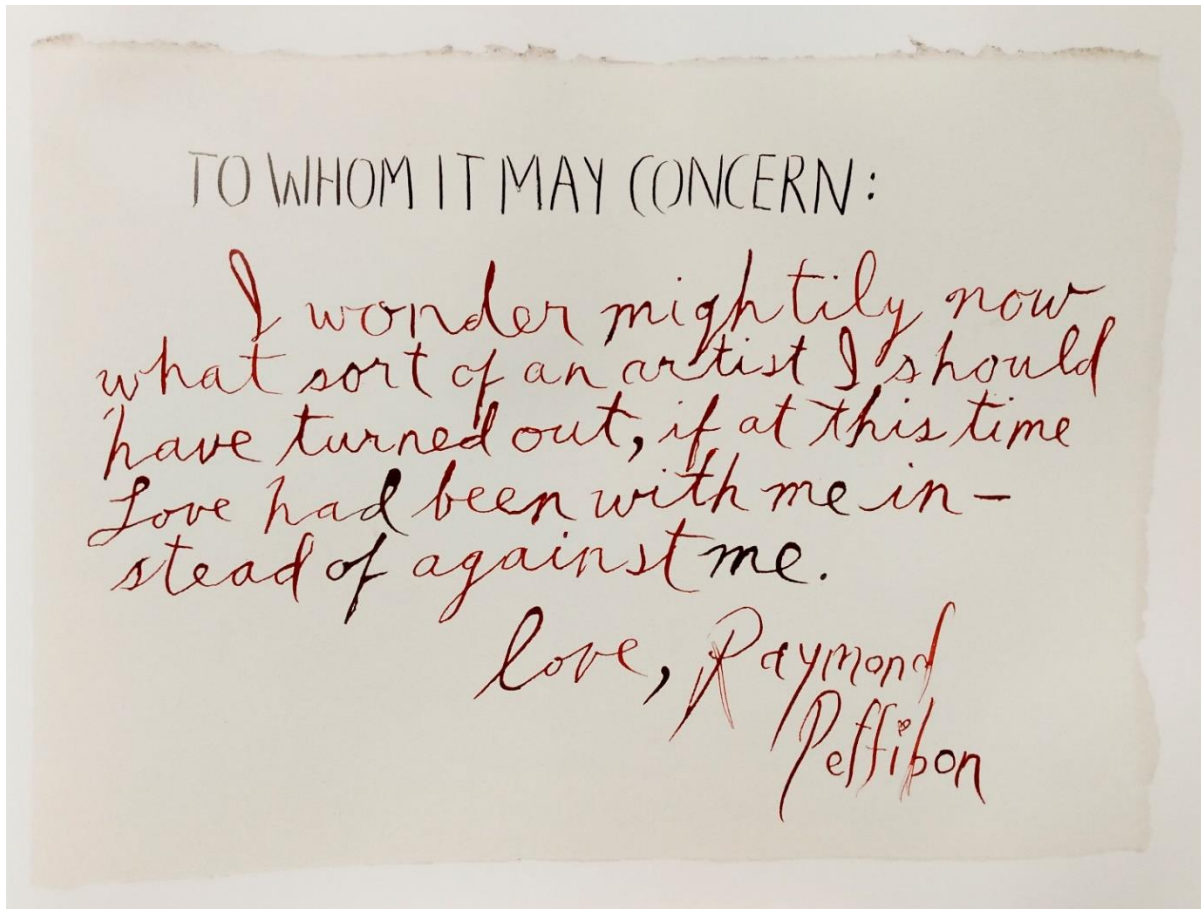 TO WHOM IT MAY CONCERN:
I wonder mightily now
what sort of an artist I should
have turned out, if at this time
Love had been with me in-
stead of against me.
love, Raymond
Pettibon